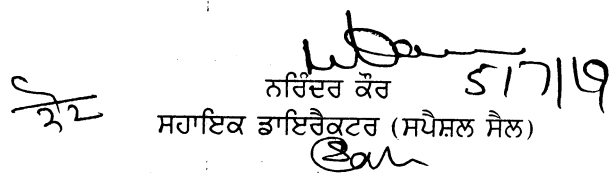 5/7/19
ਨਰਿੰਦਰ ਕੌਰ
ਸਹਾਇਕ ਡਾਇਰੈਕਟਰ (ਸਪੈਸ਼ਲ ਸੈਲ)